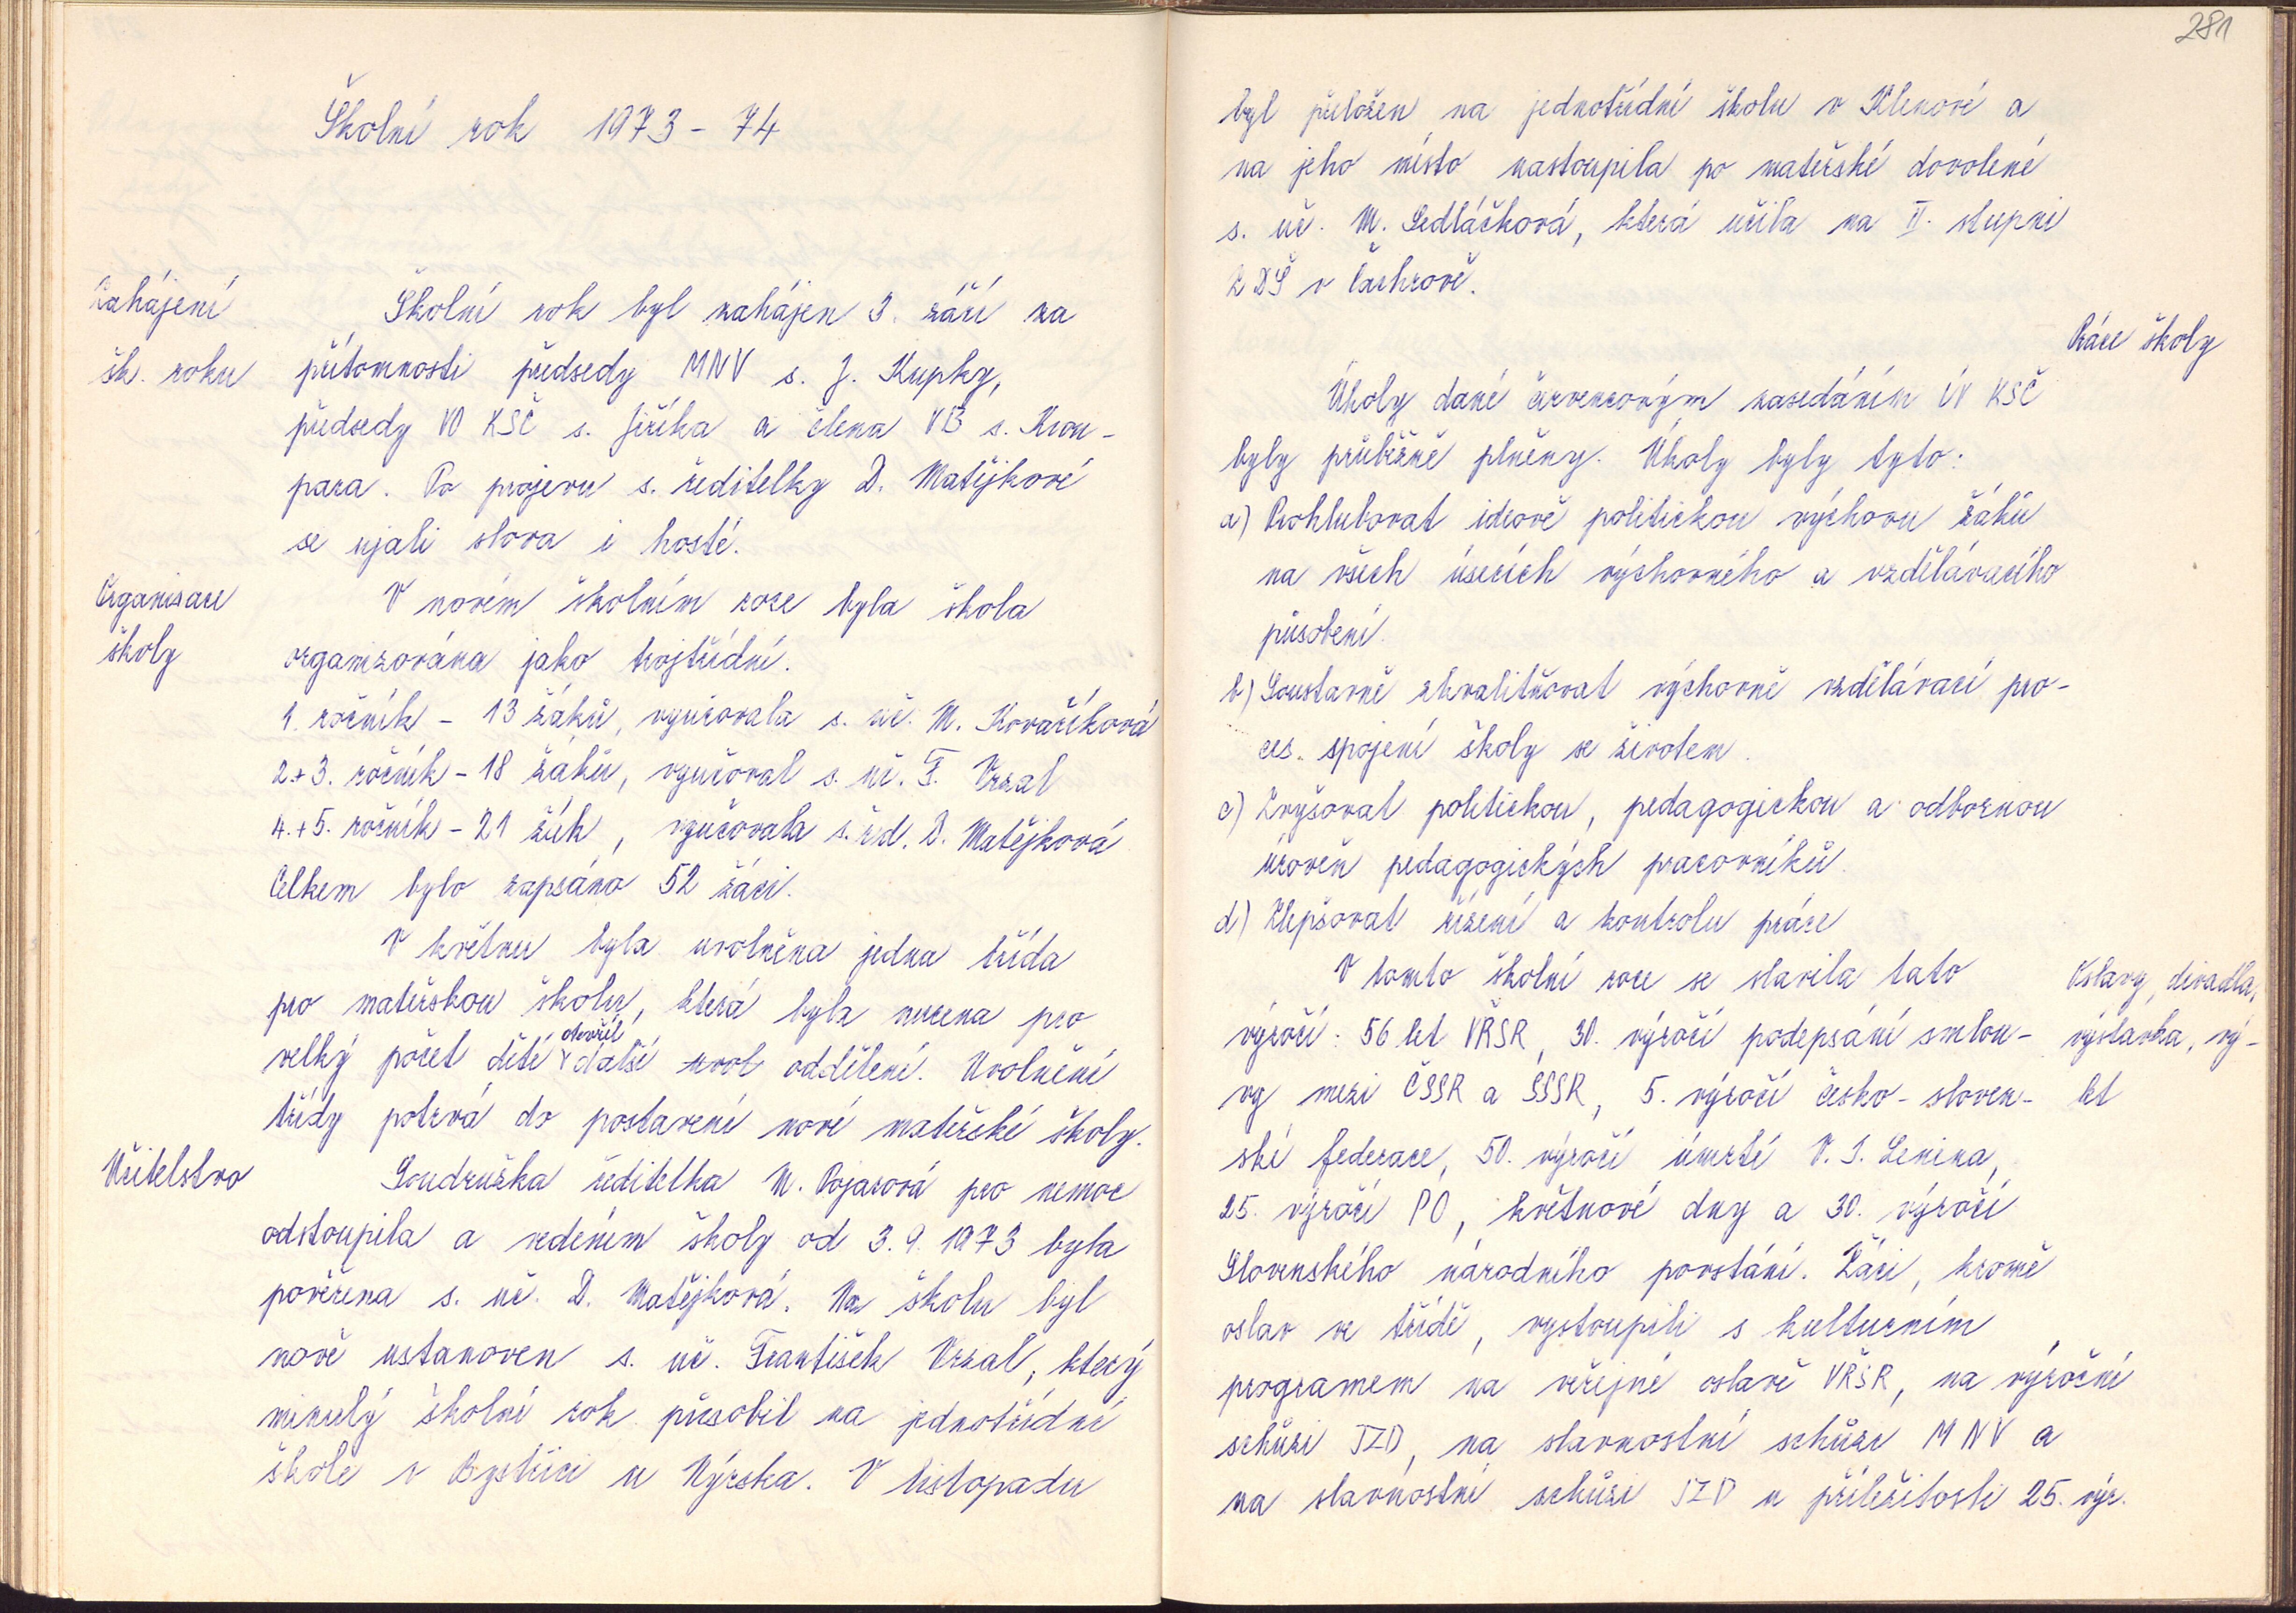 281
Školní rok 1973 - 74
Zahájení
šk. roku
Školní rok byl zahájen 3. září za
přítomnosti předsedy MNV s. J. Kupky,
předsedy VO KSČ s. Jiříka a člena VB s. Krou-
para. Po projevu s. ředitelky D. Matějkové
se ujali slova i hosté.
Organisace
školy
V novém školním roce byla škola
organizována jako trojtřídní.
1. ročník - 13 žáků, vyučovala s. uč. M. Kovaříková
2.+3. ročník - 18 žáků, vyučoval s. uč. F. Vrzal
4.+5. ročník - 21 žák, vyučovala s. řed. D. Matějková
Celkem bylo zapsáno 52 žáci.
V květnu byla uvolněna jedna třída
pro mateřskou školu, která byla nucena pro
velký počet dětí otevřít další oddělení. Uvolnění
třídy potrvá do postavení nové mateřské školy.
Učitelstvo
Soudružka ředitelka M. Pojarová pro nemoc
odstoupila a vedením školy od 3. 9. 1973 byla
pověřena s. uč. D. Matějková. Na školu byl
nově ustanoven s. uč. František Vrzal, který
minulý školní rok působil na jednotřídní
škole v Bystřici u Nýrska. V listopadu
byl přeložen na jednotřídní školu v Klenové a
na jeho místo nastoupila po mateřské dovolené
s. uč. M. Sedláčková, která učila na II. stupni
ZDŠ v Čachrově.
Práce školy
Úkoly dané červencovým zasedáním ÚV KSČ
byly průběžně plněny. Úkoly byly tyto:
a) Prohlubovat ideově politickou výchovu žáků
na všech úsecích výchovného a vzdělávacího
působení.
b) Soustavně zkvalitňovat výchovně vzdělávací pro-
ces. spojení školy se životem.
c) Zvyšovat politickou, pedagogickou a odbornou
úroveň pedagogických pracovníků.
d) Zlepšovat řízení a kontrolu práce
V tomto školní roce se slavila tato
výročí: 56 let VŘSR, 30. výročí podepsání smlou-
vy mezi ČSSR a SSSR, 5. výročí česko-sloven-
ské federace, 50. výročí úmrtí V. I. Lenina,
25. výročí PO, květnové dny a 30. výročí
Slovenského národního povstání. Žáci, kromě
oslav ve třídě, vystoupili s kulturním
programem na veřejné oslavě VŘSR, na výroční
schůzi JZD, na slavnostní schůze MNV a
na slavnostní schůzi JZD u příležitosti 25. výr.
Oslavy, divadla,
výstavka, vý-
let